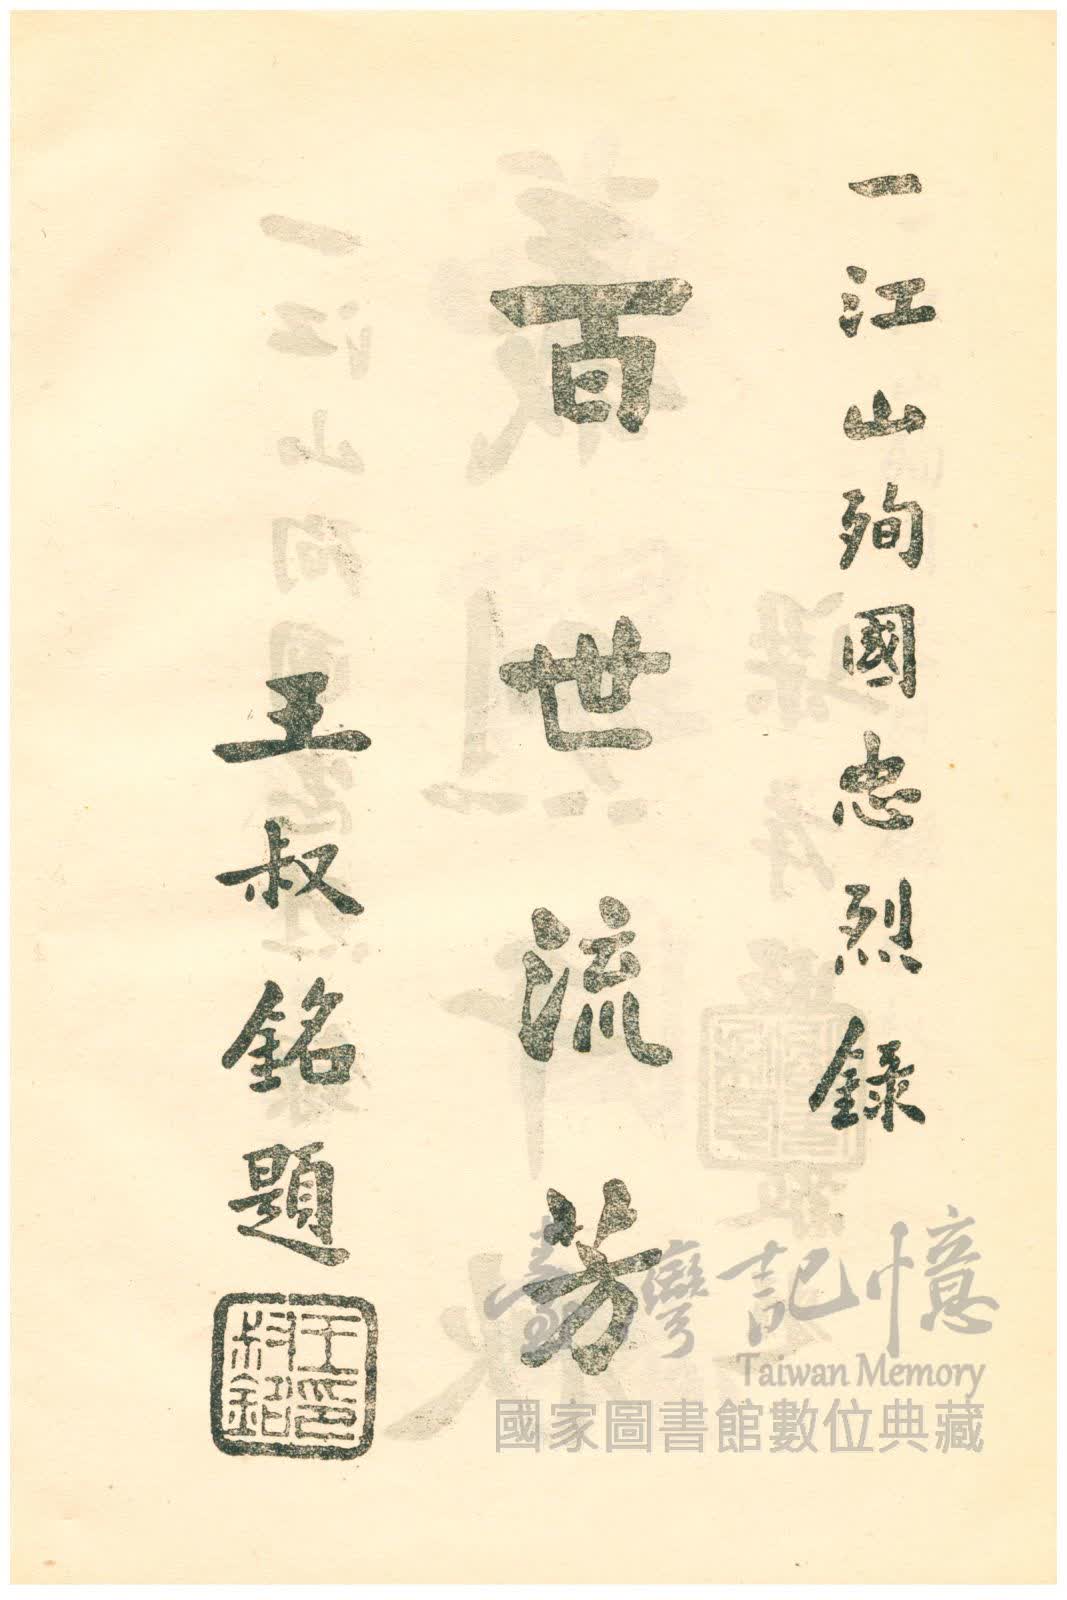 一江山殉國忠烈錄
百世流芳
王叔銘題
王印叔銘
臺灣記憶
Taiwan Memory
國家圖書館數位典藏